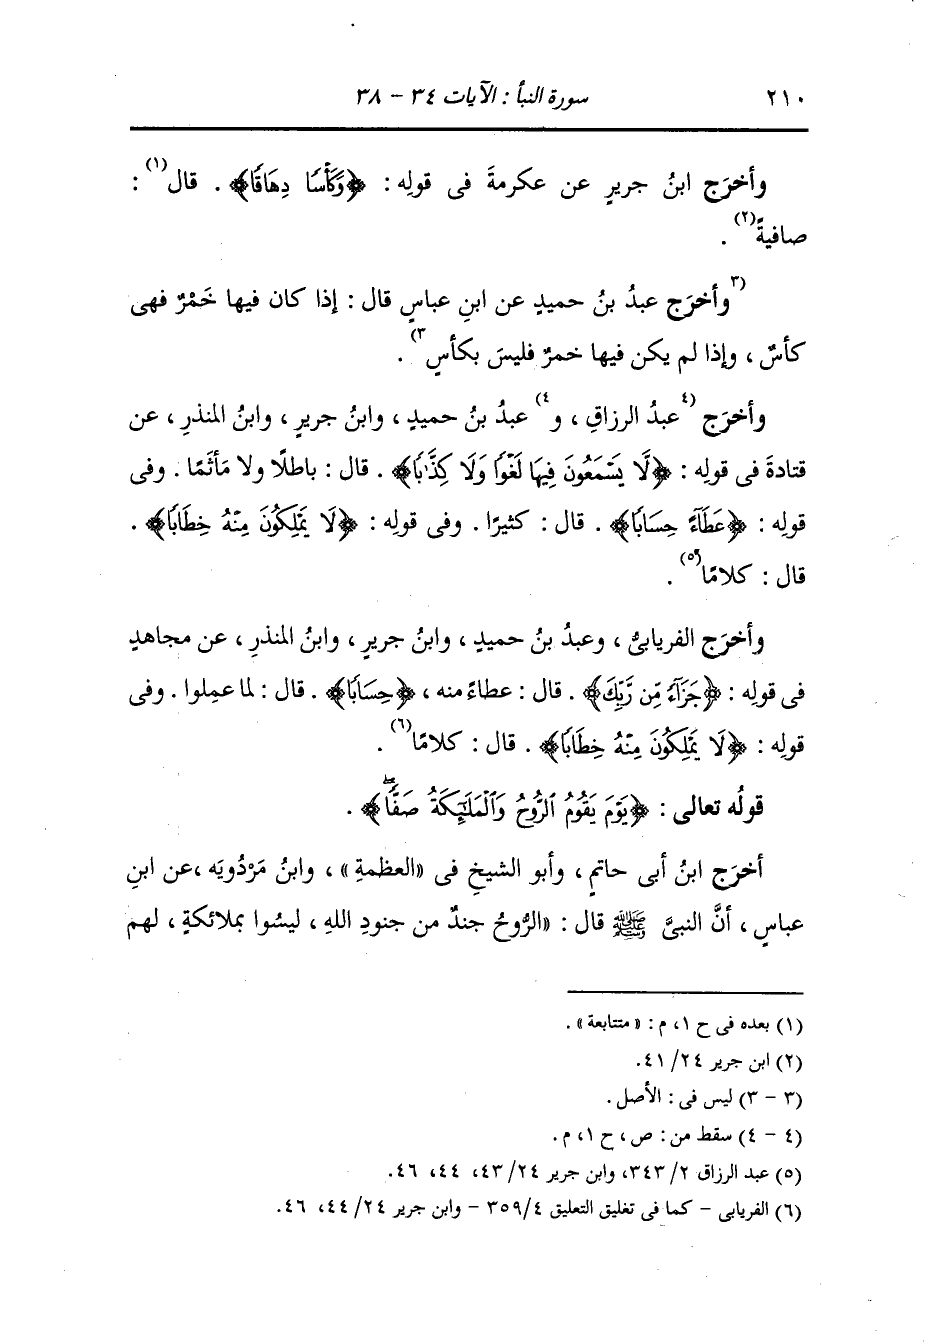 ٢١٠ سورة النبأ : الآيات ٣٤ - ٣٨
وأخرَج ابنُ جريرٍ عن عكرمةَ فى قولِه : ﴿وَكَأْسًا دِهَاقًا﴾ . قال(١) :
صافيةً(٢) .
(٣وأخرَج عبدُ بنُ حميدٍ عن ابنِ عباسٍ قال : إذا كان فيها خَمْرٌ فهى
كأسٌ ، وإذا لم يكن فيها خمرٌ فليسَ بكأسٍ٣) .
وأخرَج (٤عبدُ الرزاقِ ، و٤) عبدُ بنُ حميدٍ ، وابنُ جريرٍ ، وابنُ المنذرِ ، عن
قتادةَ فى قولِه : ﴿لَّا يَسْمَعُونَ فِيهَا لَغْوًا وَلَا كِذَّابًا﴾ . قال : باطلًا ولا مَأثَمًا . وفى
قولِه : ﴿عَطَآءً حِسَابًا﴾ . قال : كثيرًا . وفى قولِه : ﴿لَا يَمْلِكُونَ مِنْهُ خِطَابًا﴾ .
قال : كلامًا(٥) .
وأخرَج الفريابىُّ ، وعبدُ بنُ حميدٍ ، وابنُ جريرٍ ، وابنُ المنذرِ ، عن مجاهدٍ
فى قولِه : ﴿جَزَآءً مِّن رَّبِّكَ﴾ . قال : عطاءً منه ، ﴿حِسَابًا﴾ . قال : لما عمِلوا . وفى
قولِه : ﴿لَا يَمْلِكُونَ مِنْهُ خِطَابًا﴾ . قال : كلامًا(٦) .
قولُه تعالى : ﴿يَوْمَ يَقُومُ ٱلرُّوحُ وَٱلْمَلَٰٓئِكَةُ صَفًّا ۖ﴾ .
أخرَج ابنُ أبى حاتمٍ ، وأبو الشيخِ فى «العظمةِ» ، وابنُ مَرْدُويَه ، عن ابنِ
عباسٍ ، أنَّ النبىَّ ﷺ قال : «الرُّوحُ جندٌ من جنودِ اللهِ ، ليسُوا بملائكةٍ ، لهم
(١) بعده فى ح ١، م : «متتابعة» .
(٢) ابن جرير ٢٤/ ٤١.
(٣ - ٣) ليس فى : الأصل .
(٤ - ٤) سقط من : ص ، ح ١، م .
(٥) عبد الرزاق ٢/ ٣٤٣، وابن جرير ٢٤/ ٤٣، ٤٤، ٤٦.
(٦) الفريابى - كما فى تغليق التعليق ٤/ ٣٥٩ - وابن جرير ٢٤/ ٤٤، ٤٦.